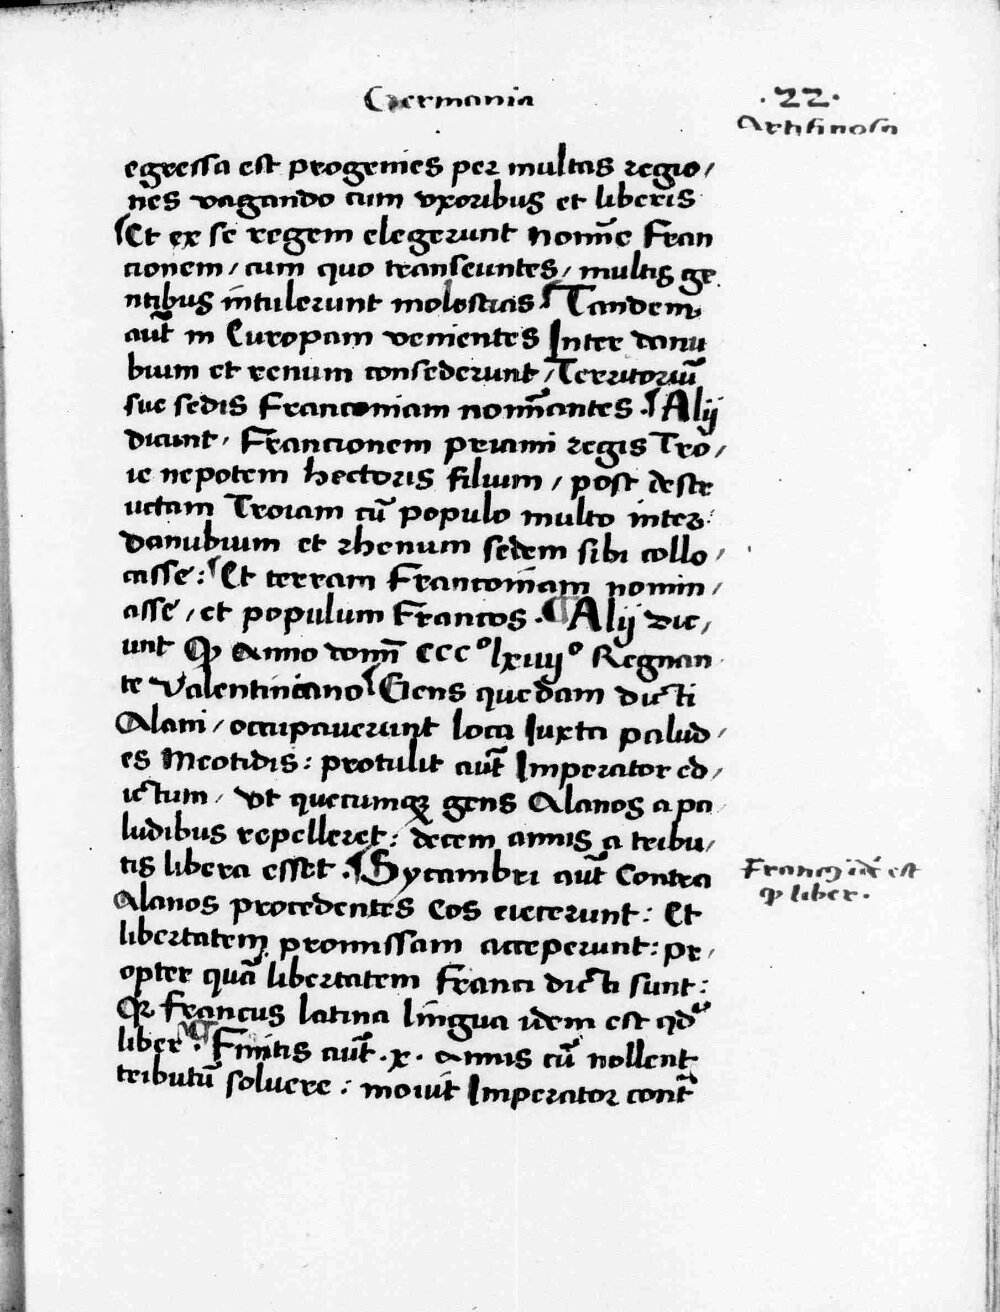 Germania
.22.
egressa est progenies per multas regio/
nes vagando cum vxoribus et liberis
Et ex se regem elegerunt nomīe Fran
cionem / cum quo transeuntes / multis ge
ntibus intulerunt molestias Tandem
aut̄ in Europam venientes Inter danu
bium et renum consederunt / Territoriū
sue sedis Franconiam nom̄antes . Alij
dicunt / Francionem priami regis Tro/
ie nepotem hectoris filium / post destr
uctam Troiam cū populo multo inter
danubium et rhenum sedem sibi collo/
casse : Et terram Franconiam nomin/
asse / et populum Francos . ¶ Alij dic/
unt Ꝙ Anno domī CCCº lxiiijº Regnan
te Valentiniano Gens quedam dicti
Alani / occupauerunt loca Iuxta palud/
es Meotidis : protulit aut̄ Imperator ed/
ictum / vt quecumqꝫ gens Alanos a pa
ludibus repelleret : decem annis a tribu/
tis libera esset . Sycambri aut̄ Contra
Alanos procedentes Eos eiecerunt : Et
libertatem promissam acceperunt : pr/
opter quā libertatem Franci dicti sunt :
Qꝛ Francus latina lingua idem est qd̄
liber . ¶ Finitis aut̄ .x. annis cū nollent
tributū soluere : mouit Imperator cont̄
Franc9 idē est
ꝙ liber .